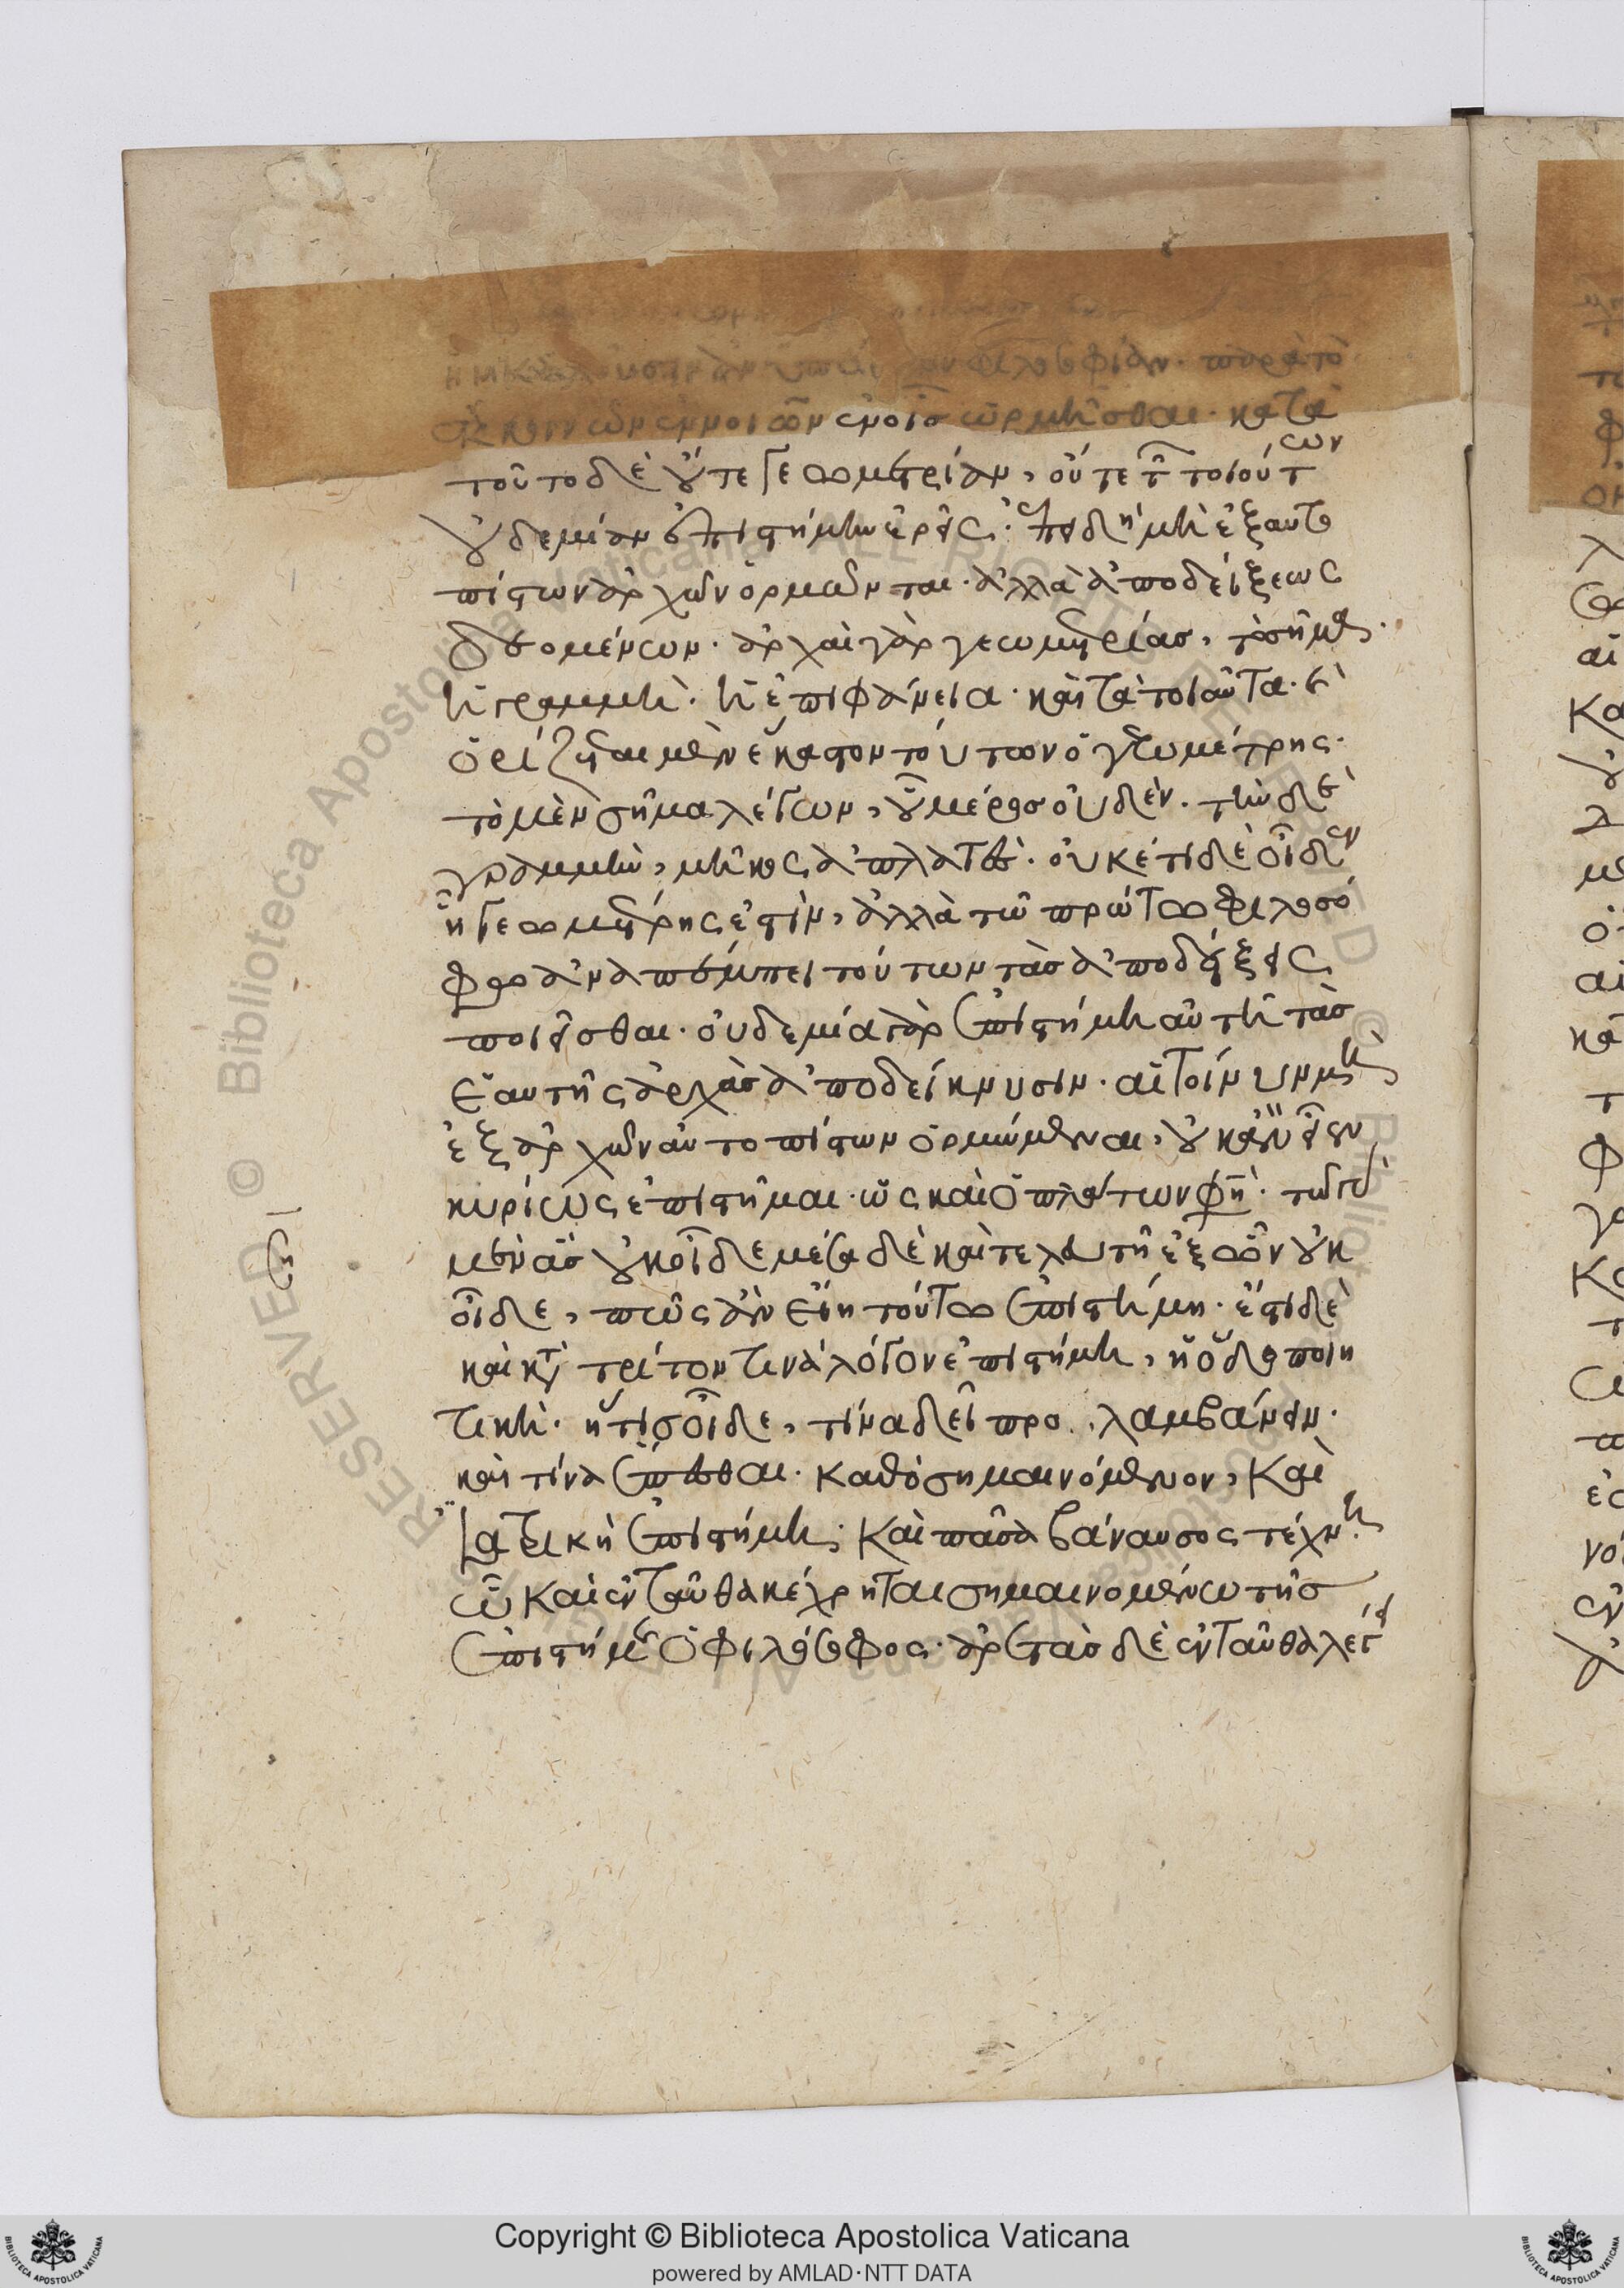 φιλοσοφίαν· παρὰ τὸ
ἐκ κοινῶν ἐννοιῶν ὡρμῆσθαι· κατὰ
τοῦτο δὲ οὔτε γεωμετρίαν, οὔτε τῶν τοιούτων
οὐδεμίαν ἐπιστήμην ἐρεῖς· ἐπειδὴ μὴ ἐξ αὐτο
πίστων ἀρχῶν ὁρμῶνται· ἀλλὰ ἀποδείξεως
δεομένων· ἀρχαὶ γὰρ γεωμετρίας, τὸ σημεῖον·
ἡ γραμμὴ· ἡ ἐπιφάνεια· καὶ τὰ τοιαῦτα· καὶ
ὁρίζεται μὲν ἕκαστον τούτων ὁ γεωμέτρης·
τὸ μὲν σημεῖον λέγων, οὗ μέρος οὐδέν· τὴν δὲ
γραμμὴν, μῆκος ἀπλατὲς· οὐκέτι δὲ οἶδεν
ᾗ γεωμέτρης ἐστίν, ἀλλὰ τῷ πρώτῳ φιλοσό
φῳ ἀναπέμπει τούτων τὰς ἀποδείξεις
ποιεῖσθαι· οὐδεμία γὰρ ἐπιστήμη αὐτὴ τὰς
ἑαυτῆς ἀρχὰς ἀποδείκνυσιν· αἱ τοίνυν μὴ
ἐξ ἀρχῶν αὐτοπίστων ὁρμώμεναι, οὐκ ἂν εἶεν
κυρίως ἐπιστῆμαι· ὡς καὶ ὁ πλάτων φησὶ· τῶν γὰρ
μὲν ἃς οὐκ οἶδε μέσα δὲ καὶ τελευτὴ ἐξ ὧν οὐκ
οἶδε, πῶς ἂν εἴη τούτῳ ἐπιστήμη· ἔστι δὲ
καὶ κατὰ τρίτον τινὰ λόγον ἐπιστήμη, ἡ ὁδοποιη
τικὴ· ἥτις οἶδε, τίνα δεῖ προλαμβάνειν·
καὶ τίνα ἕπεσθαι· καθὸ σημαινόμενον, καὶ
ἰατρικὴ ἐπιστήμη· καὶ πᾶσα βάναυσος τέχνη·
ᾧ καὶ ἐνταῦθα κέχρηται σημαινομένῳ τῆς
ἐπιστήμης ὁ φιλόσοφος· ἀρετὰς δὲ ἐνταῦθα λέγει
Copyright © Biblioteca Apostolica Vaticana
powered by AMLAD·NTT DATA